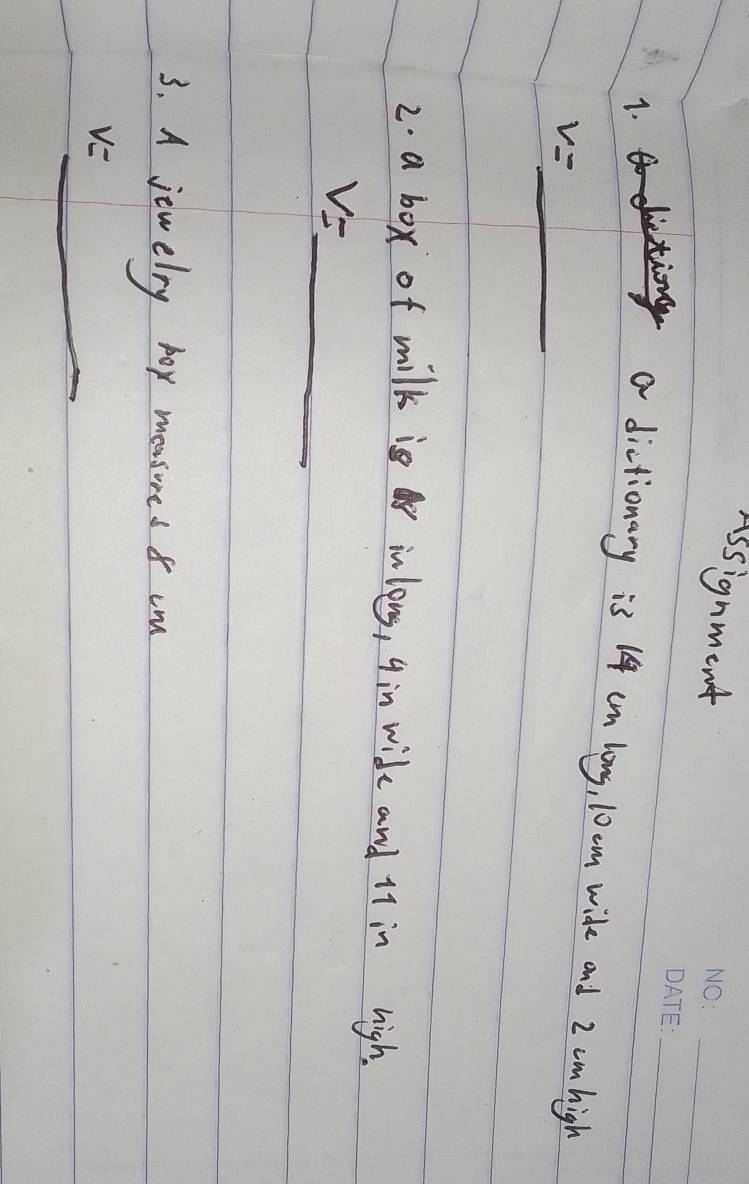 Assignment
NO:
DATE:
1. a dictionary is 14 cm long, 10 cm wide and 2 cm high
V=
2. a box of milk is in long, 4 in wide and 11 in high.
V=
3. A jewelry box measures 8 cm
V=